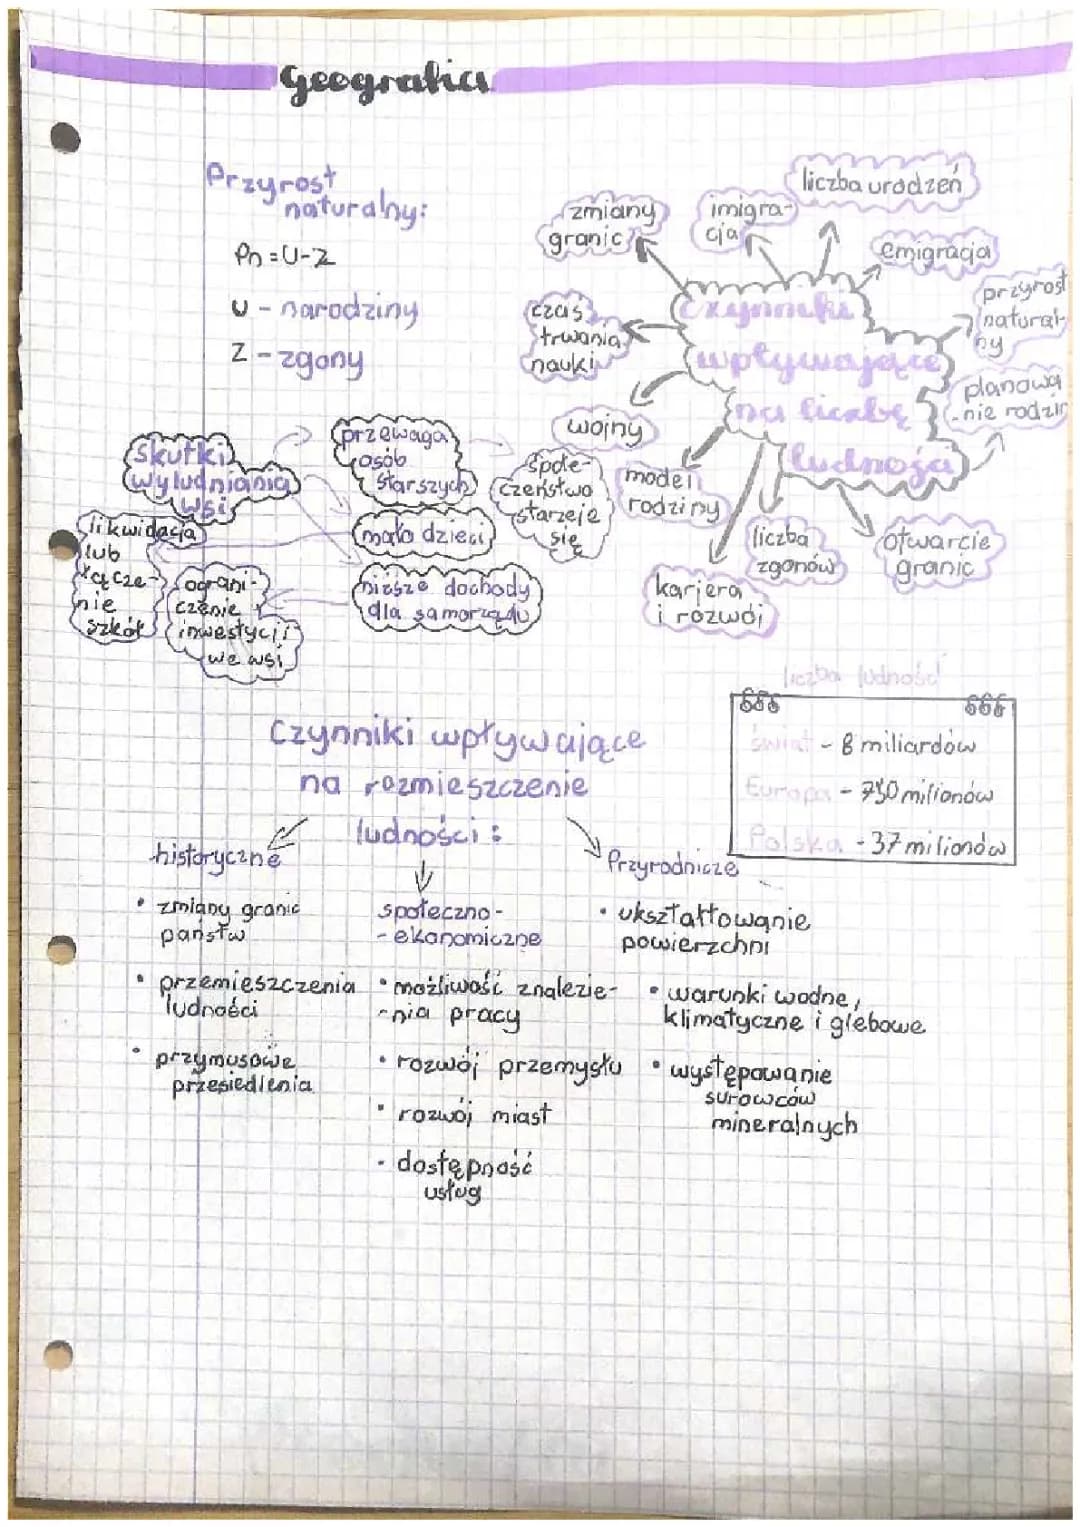 Geografia
Przyrost
naturalny:
Pn = U-Z
U - narodziny
Z - zgony
Czynniki
wpływające
na liczbę
ludności
liczba urodzeń
imigra-
cja
zmiany
granic
emigracja
przyrost
natural-
ny
planowa
-nie rodzin
czas
trwania
nauki
wojny
model
rodziny
karjera
i rozwój
liczba
zgonów
otwarcie
granic
skutki
wyludniania
wsi
przewaga
osób
starszych
społe-
czeństwo
starzeje
się
mało dzieci
niższe dochody
dla samorządu
likwidacja
lub
łącze-
nie
szkół
ograni-
czenie
inwestycji
we wsi
liczba ludność
świat - 8 miliardów
Europa - 750 milionów
Polska - 37 milionów
Czynniki wpływające
na rozmieszczenie
ludności:
historyczne
• zmiany granic
państw
• przemieszczenia
ludności
• przymusowe
przesiedlenia
społeczno-
-ekonomiczne
• możliwość znalezie-
-nia pracy
• rozwój przemysłu
• rozwój miast
• dostępność
usług
Przyrodnicze
• ukształtowanie
powierzchni
• warunki wodne,
klimatyczne i glebowe
• występowanie
surowców
mineralnych